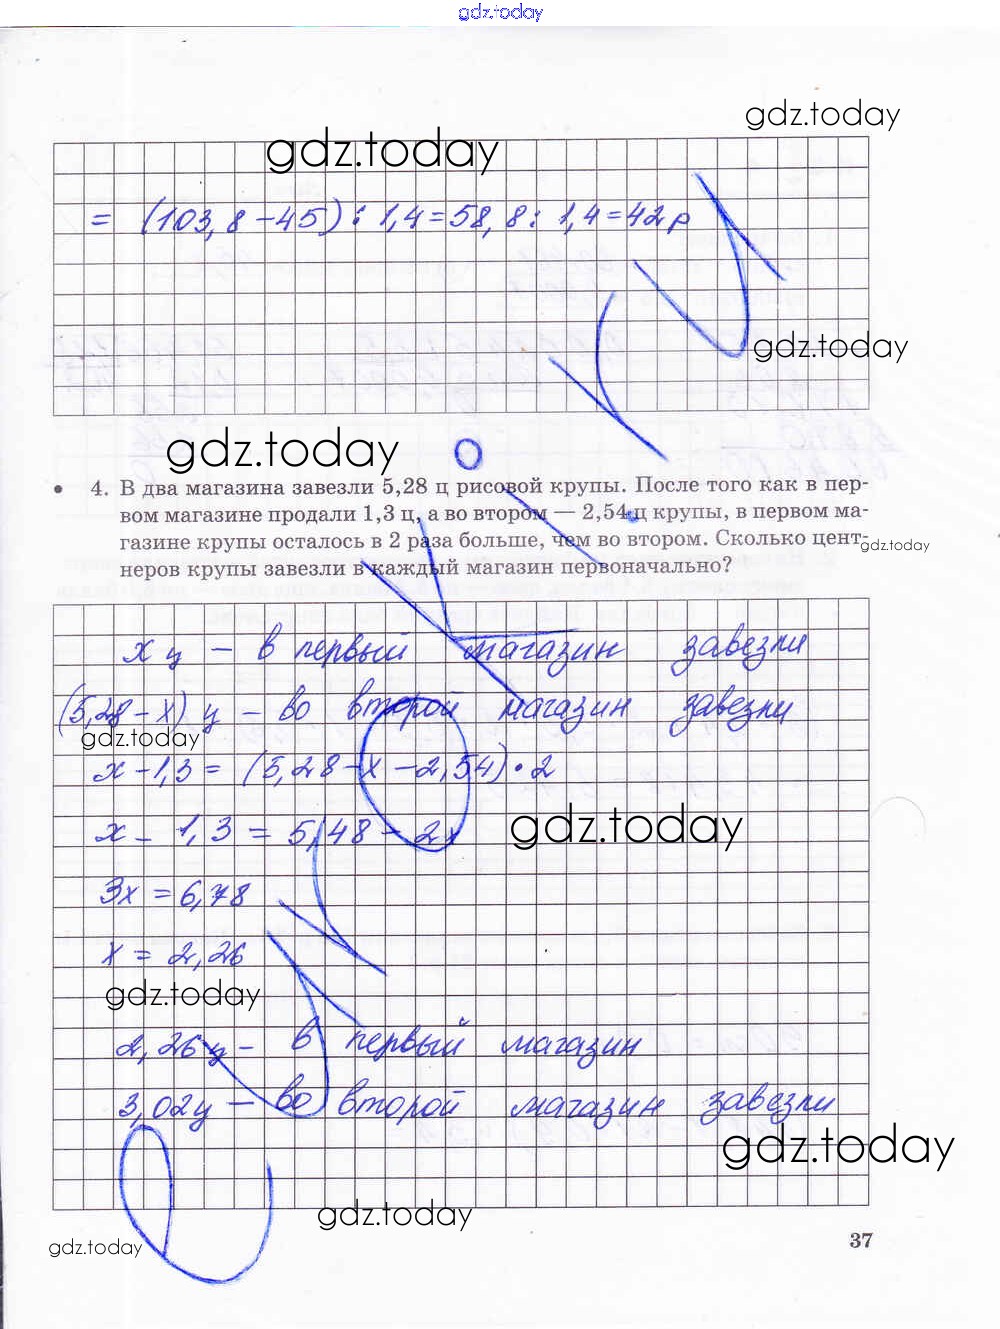 gdz.today
gdz.today
gdz.today
= (103,8-45) : 1,4=58,8: 1,4=42р
gdz.today
gdz.today
• 4. В два магазина завезли 5,28 ц рисовой крупы. После того как в пер-
вом магазине продали 1,3 ц, а во втором — 2,54 ц крупы, в первом ма-
газине крупы осталось в 2 раза больше, чем во втором. Сколько цент-
gdz.today
неров крупы завезли в каждый магазин первоначально?
x ц - в первый магазин завезли
(5,28-x) ц - во второй магазин завезли
gdz.today
x-1,3 = (5,28-x-2,54)·2
x - 1,3 = 5,48 - 2x
gdz.today
3x = 6,78
x = 2,26
gdz.today
2,26ц - в первый магазин
3,02ц - во второй магазин завезли
gdz.today
gdz.today
37
gdz.today